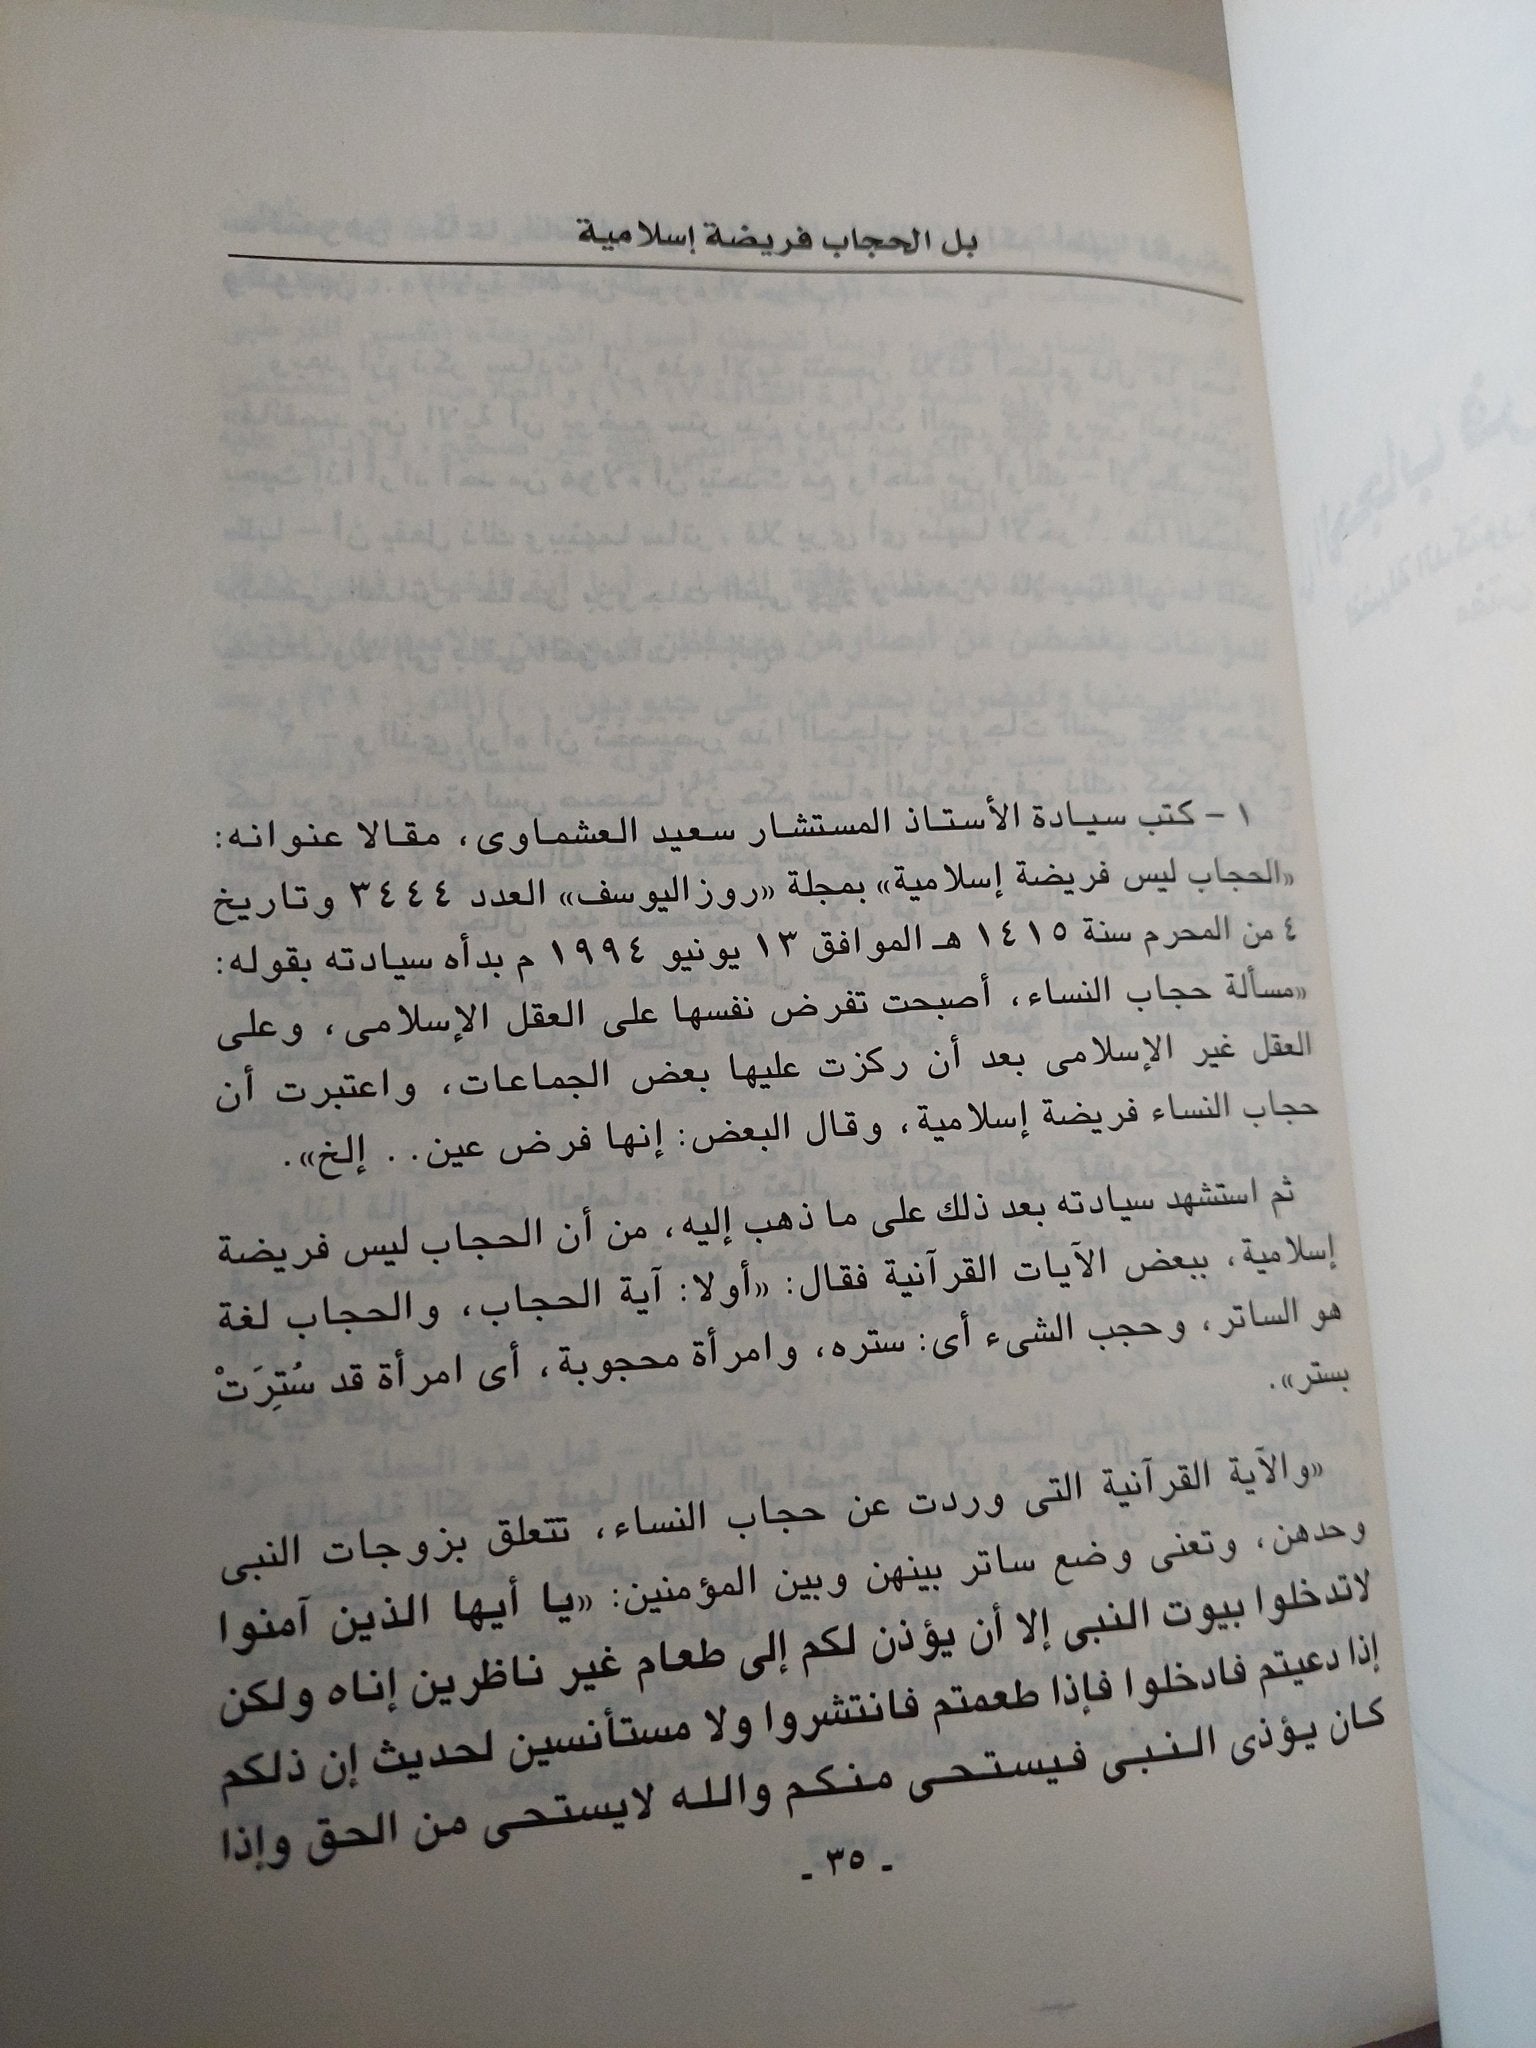 بل الحجاب فريضة إسلامية
١ - كتب سيادة الأستاذ المستشار سعيد العشماوى، مقالا عنوانه:
«الحجاب ليس فريضة إسلامية» بمجلة «روزاليوسف» العدد ٣٤٤٤ وتاريخ
٤ من المحرم سنة ١٤١٥ هـ الموافق ١٣ يونيو ١٩٩٤ م بدأه سيادته بقوله:
«مسألة حجاب النساء، أصبحت تفرض نفسها على العقل الإسلامى، وعلى
العقل غير الإسلامى بعد أن ركزت عليها بعض الجماعات، واعتبرت أن
حجاب النساء فريضة إسلامية، وقال البعض: إنها فرض عين.. إلخ».
ثم استشهد سيادته بعد ذلك على ما ذهب إليه، من أن الحجاب ليس فريضة
إسلامية، ببعض الآيات القرآنية فقال: «أولا: آية الحجاب، والحجاب لغة
هو الساتر، وحجب الشىء أى: ستره، وامرأة محجوبة، أى امرأة قد سُتِرَتْ
بستر».
«والآية القرآنية التى وردت عن حجاب النساء، تتعلق بزوجات النبى
وحدهن، وتعنى وضع ساتر بينهن وبين المؤمنين: «يا أيها الذين آمنوا
لاتدخلوا بيوت النبى إلا أن يؤذن لكم إلى طعام غير ناظرين إناه ولكن
إذا دعيتم فادخلوا فإذا طعمتم فانتشروا ولا مستأنسين لحديث إن ذلكم
كان يؤذى النبى فيستحى منكم والله لايستحى من الحق وإذا
- ٣٥ -